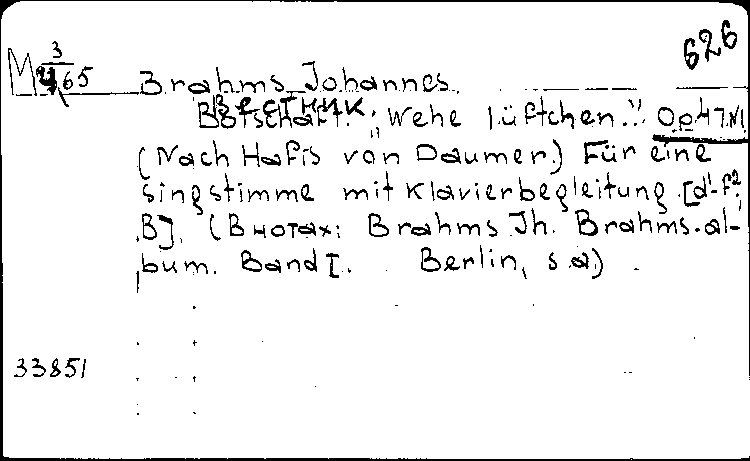 626
M 3/465 Brahms Johannes.
Вестник.
Botschaft. "Wehe Lüftchen.." Op 47 N1
(Nach Hafis von Daumer.) Für eine
singstimme mit Klavierbegleitung. [d'-f²,
B]. (В нотах: Brahms Jh. Brahms-al-
bum. Band I. Berlin, s.a)
33851